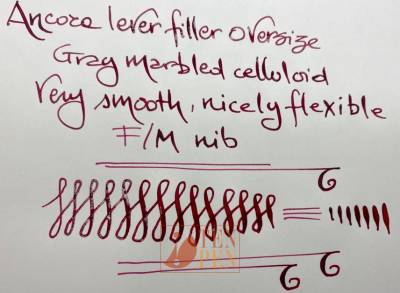 Ancora lever filler oversize
Gray marbled celluloid
Very smooth, nicely flexible
F/M nib
PEN